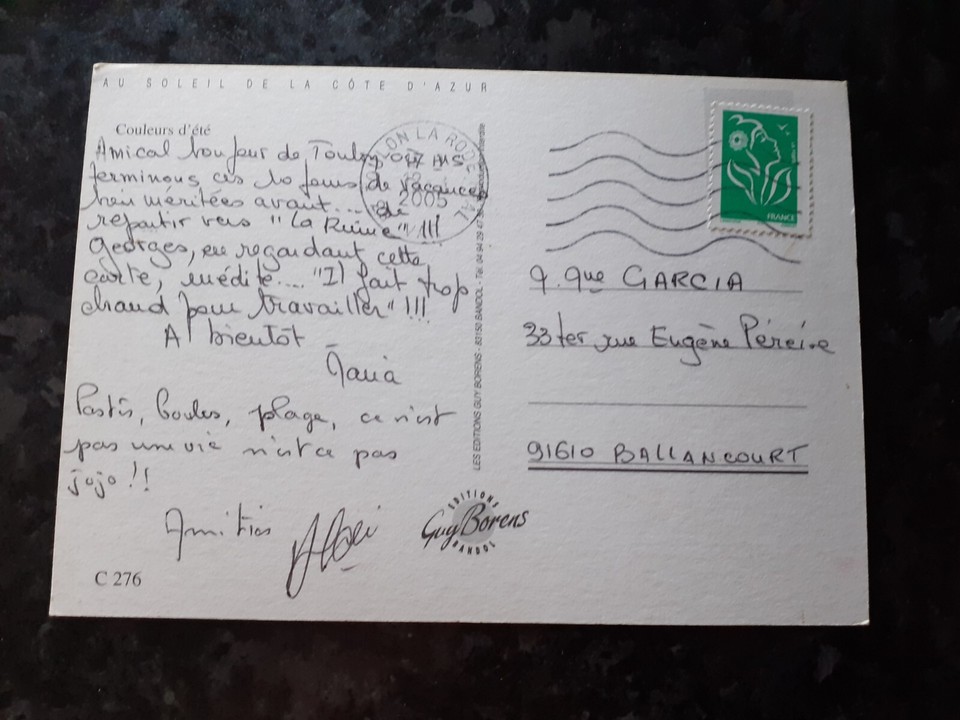 AU SOLEIL DE LA CÔTE D'AZUR
Couleurs d'été
Amical bonjour de Toulon où nous
terminons ces 10 jours de vacances
bien méritées avant.... de
repartir vers "La Ruine" !!!
Georges, en regardant cette
carte, médite.... "Il fait trop
chaud pour travailler" !!!
A bientôt
Maria
Pastis, boules, plage, ce n'est
pas une vie n'est ce pas
jojo !!
Amitiés
C 276
LES EDITIONS GUY BORENS - 83150 BANDOL - Tél. 04 94 29 47
interdite
EDITIONS
Guy Borens
BANDOL
LON LA RODE
2005
FRANCE
M. Mme GARCIA
33 ter rue Eugène Péreire
91610 BALLANCOURT